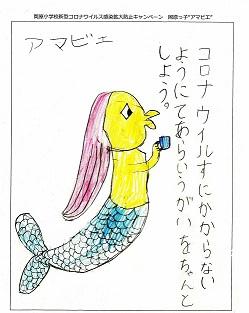 岡原小学校新型コロナウイルス感染拡大防止キャンペーン　岡原っ子"アマビエ"
アマビエ
コロナウイルすにかからない
ようにてあらいうがいをちゃんと
しよう。